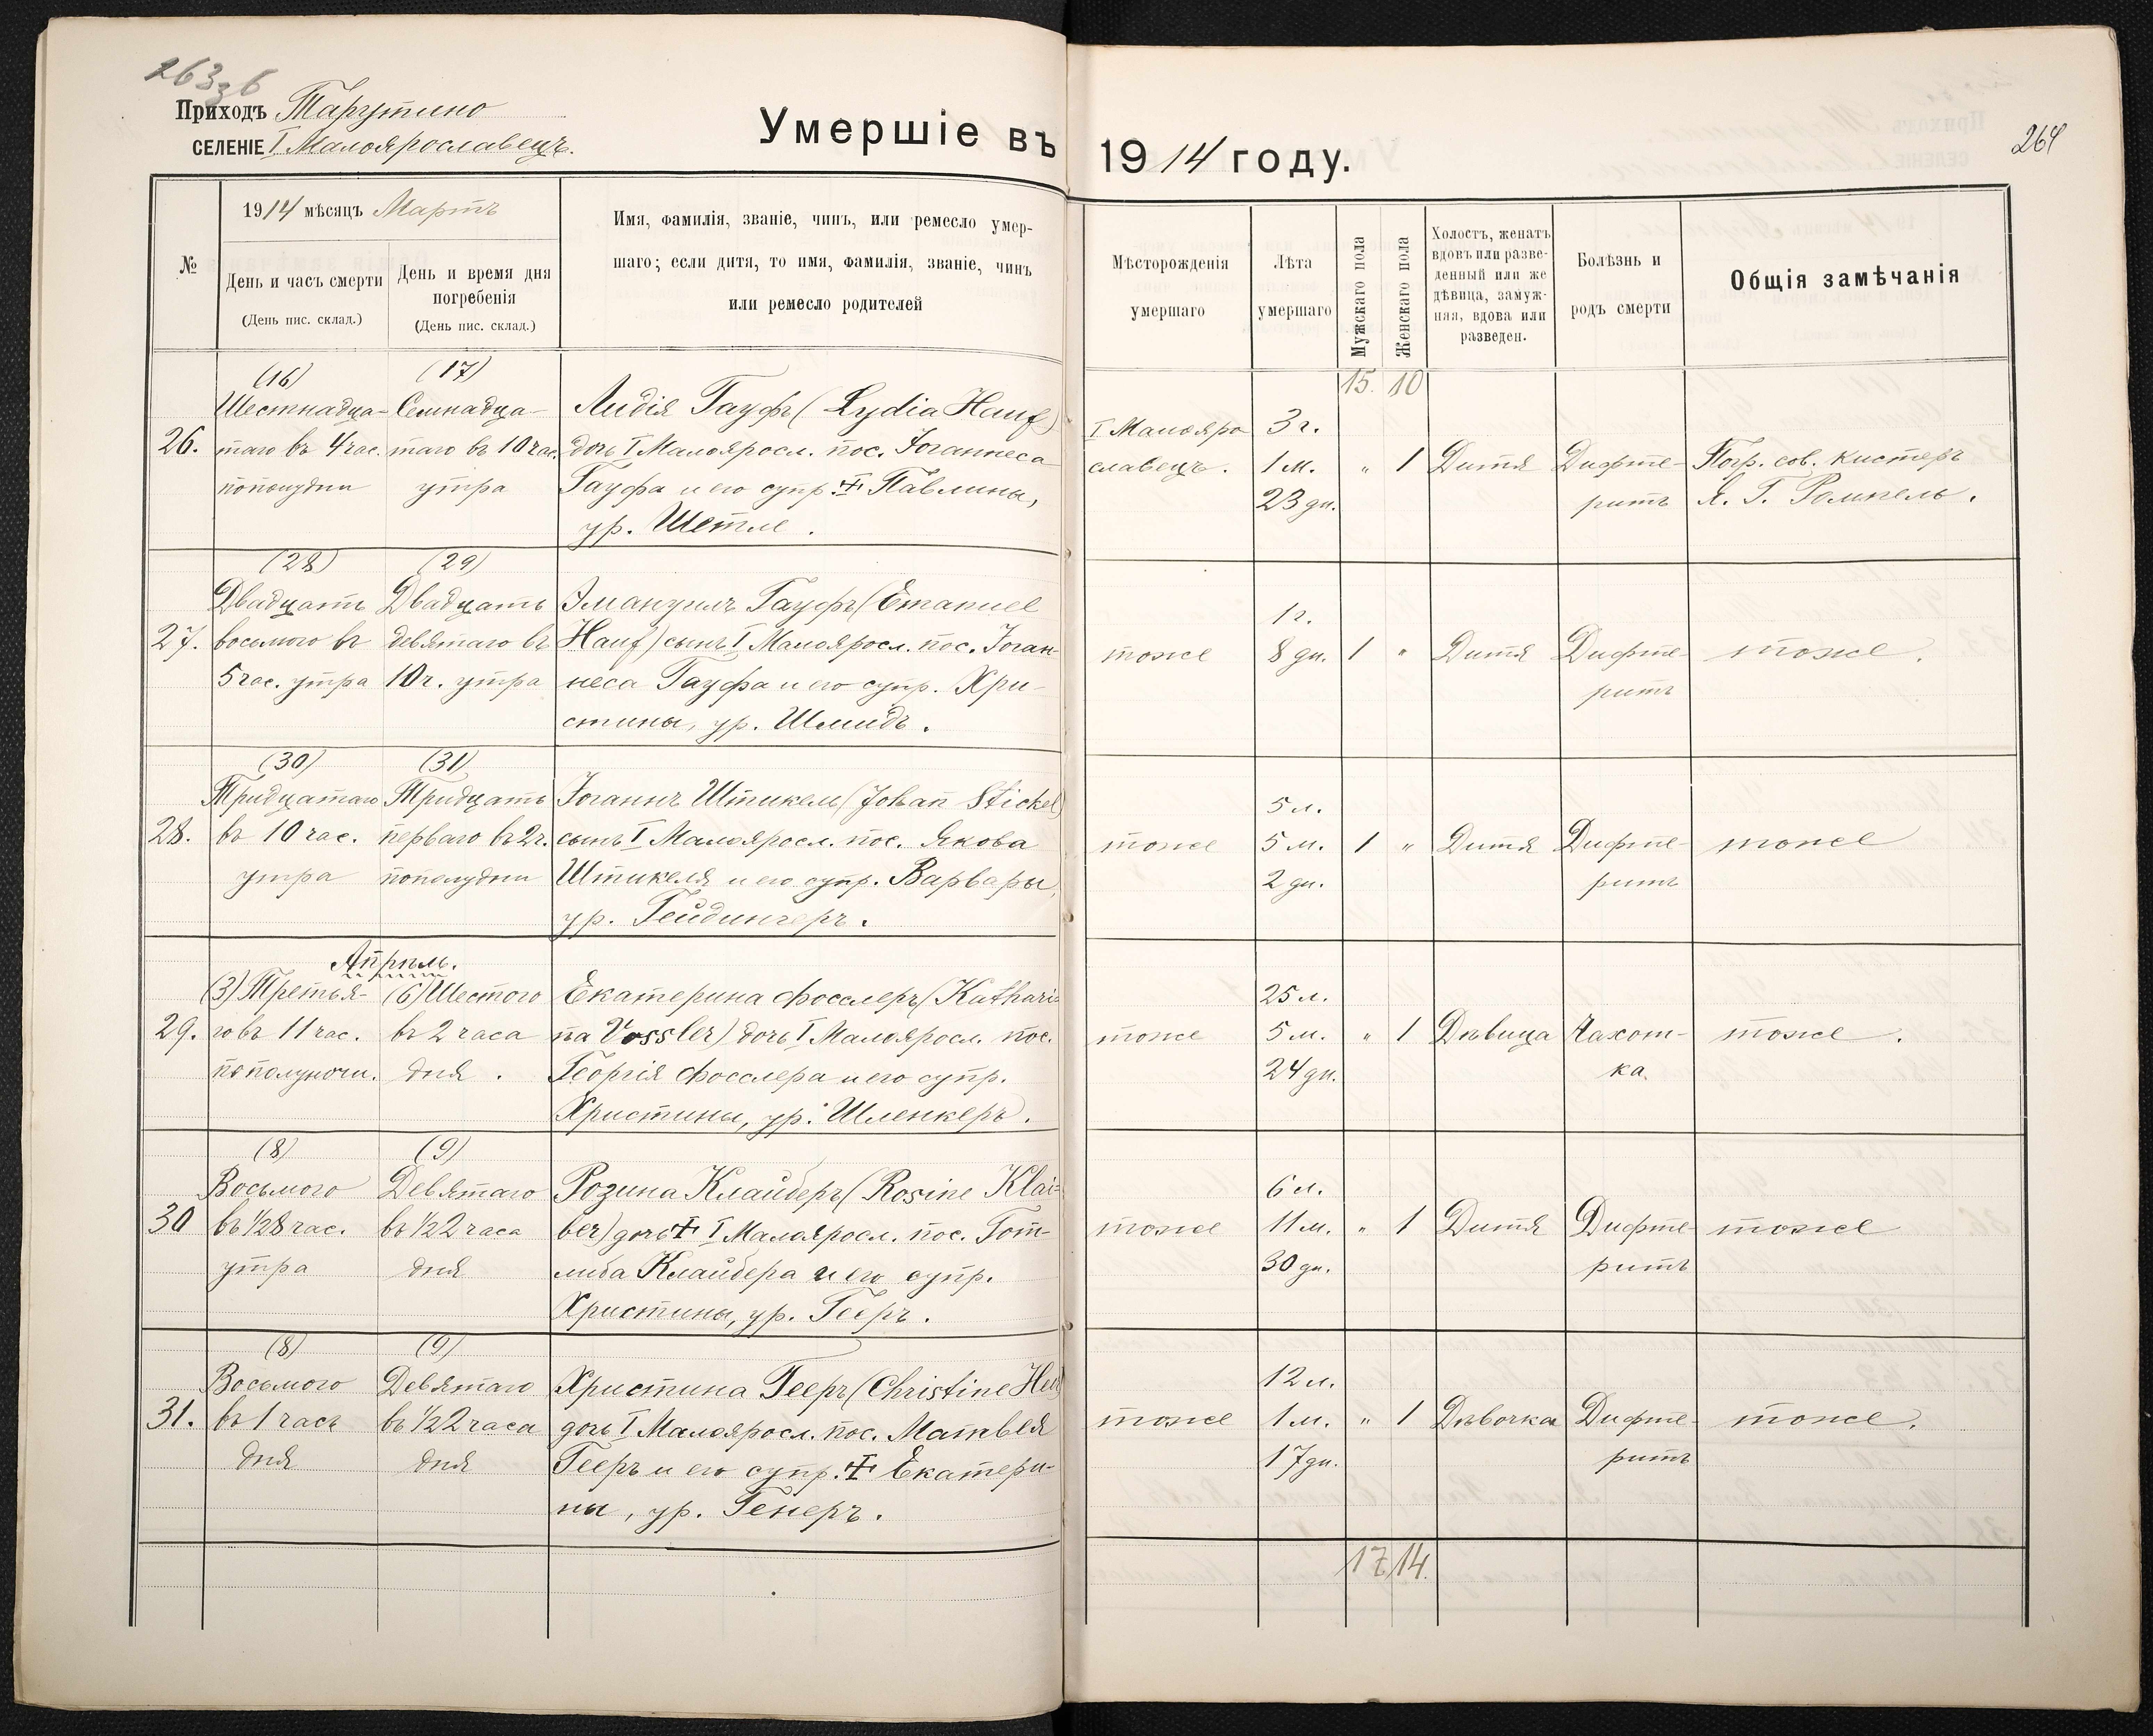 263 зб
Приходъ Тарутино
СЕЛЕНІЕ I Малоярославецъ.
Умершіе въ 1914 году.
264
№
1914 мѣсяцъ Мартъ
День и часъ смерти
(День пис. склад.)
День и время дня
погребенія
(День пис. склад.)
Имя, фамилія, званіе, чинъ, или ремесло умер-
шаго; если дитя, то имя, фамилія, званіе, чинъ
или ремесло родителей
Мѣсторожденія
умершаго
Лѣта
умершаго
Мужскаго пола
Женскаго пола
Холостъ, женатъ
вдовъ или разве-
денный или же
дѣвица, замуж-
няя, вдова или
разведен.
Болѣзнь и
родъ смерти
Общія замѣчанія
15. 10
26.
(16)
Шестнадца-
таго въ 4 час.
пополудни
(17)
Семнадца-
таго въ 10 час.
утра
Лидія Гауфъ (Lydia Hauf)
дочь I Малояросл. пос. Іоганнеса
Гауфа и его супр. ‡ Павлины,
ур. Шетле.
I Малояро
славецъ.
3 г.
1 м.
23 дн.
" 1
Дитя
Дифте-
ритъ
Погр. сов. кистеръ
Я. Г. Ромпель.
27.
(28)
Двадцать
восьмого въ
5 час. утра
(29)
Двадцать
девятаго въ
10 ч. утра
Эмануилъ Гауфъ (Emanuel
Hauf) сынъ I Малояросл. пос. Іоган-
неса Гауфа и его супр. Хри-
стины, ур. Шмидъ.
тоже
1 г.
8 дн.
1 "
Дитя
Дифте-
ритъ
тоже.
28.
(30)
Тридцатаго
въ 10 час.
утра
(31)
Тридцать
перваго въ 2 ч.
пополудни
Іоганнъ Штикель (Johan̅ Stickel)
сынъ I Малояросл. пос. Якова
Штикеля и его супр. Варвары,
ур. Гейдингеръ.
тоже
5 л.
5 м.
2 дн.
1 "
Дитя
Дифте-
ритъ
тоже
Апрѣль.
29.
(3) Третья-
го въ 11 час.
пополуночи.
(6) Шестого
въ 2 часа
дня.
Екатерина Фосслеръ (Kathari-
na Vossler) дочь I Малояросл. пос.
Георгія Фосслера и его супр.
Христины, ур. Шленкеръ.
тоже
25 л.
5 м.
24 дн.
" 1
Дѣвица
Чахот-
ка.
тоже.
30
(8)
Восьмого
въ ½8 час.
утра
(9)
Девятаго
въ ½2 часа
дня
Розина Клайберъ (Rosine Klai-
ber) дочь ‡ I Малояросл. пос. Гот-
либа Клайбера и его супр.
Христины, ур. Гееръ.
тоже
6 л.
11 м.
30 дн.
" 1
Дитя
Дифте-
ритъ
тоже
31.
(8)
Восьмого
въ 1 часъ
дня
(9)
Девятаго
въ ½2 часа
дня
Христина Гееръ (Christine Heer)
дочь I Малояросл. пос. Матвѣя
Гееръ и его супр. ‡ Екатери-
ны, ур. Генеръ.
тоже
12 л.
1 м.
17 дн.
" 1
Дѣвочка
Дифте-
ритъ
тоже.
17 14.